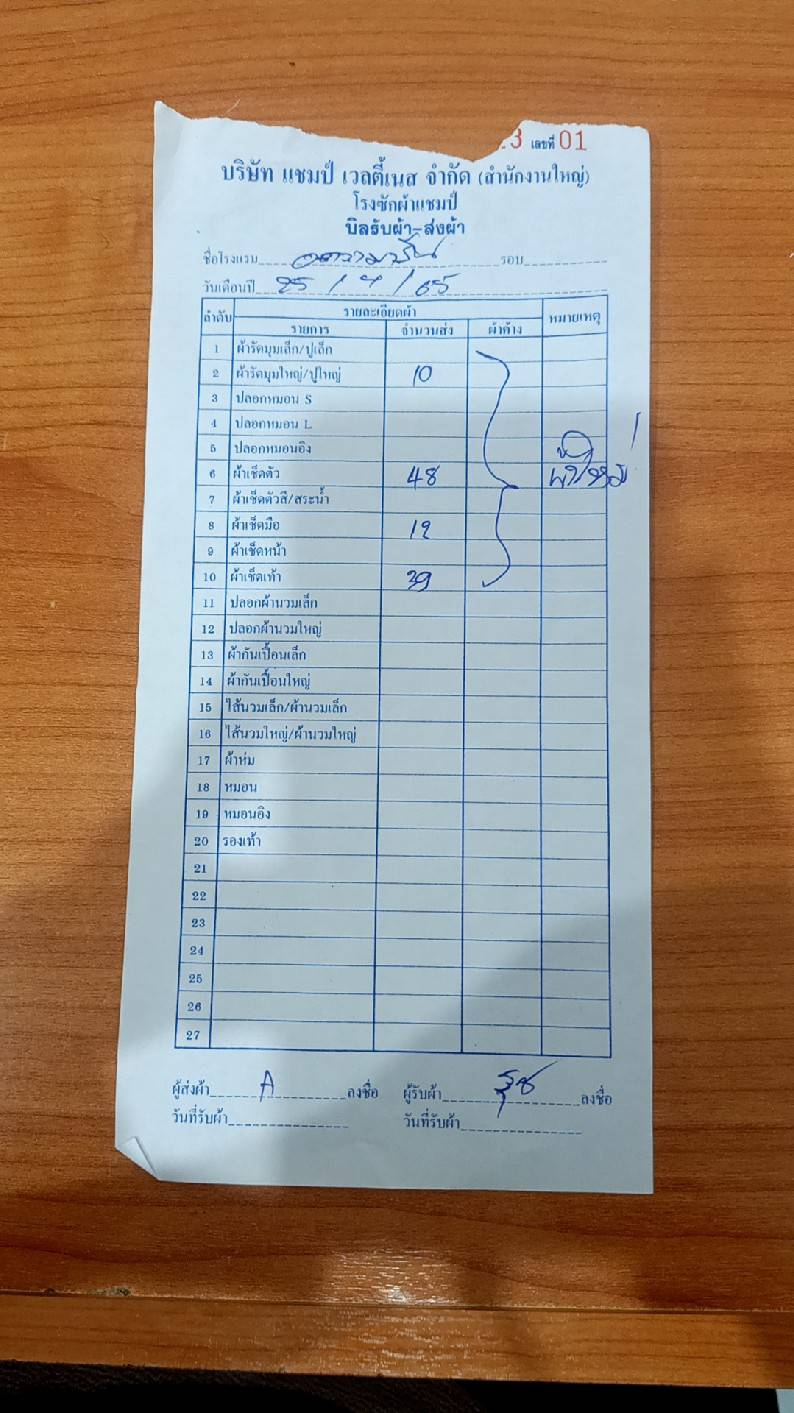 3 เลขที่ 01
บริษัท แชมป์ เวลตี้เนส จำกัด (สำนักงานใหญ่)
โรงซักผ้าแชมป์
บิลรับผ้า-ส่งผ้า
ชื่อโรงแรม รอบ
วันเดือนปี 25/7/65
ลำดับ รายละเอียดผ้า หมายเหตุ
รายการ จำนวนส่ง ผ้าค้าง
1 ผ้ารัดมุมเล็ก/ปูเล็ก
2 ผ้ารัดมุมใหญ่/ปูใหญ่ 10
3 ปลอกหมอน S
4 ปลอกหมอน L
5 ปลอกหมอนอิง
6 ผ้าเช็ดตัว 48
7 ผ้าเช็ดตัวสี/สระน้ำ
8 ผ้าเช็ดมือ 12
9 ผ้าเช็ดหน้า
10 ผ้าเช็ดเท้า 39
11 ปลอกผ้านวมเล็ก
12 ปลอกผ้านวมใหญ่
13 ผ้ากันเปื้อนเล็ก
14 ผ้ากันเปื้อนใหญ่
15 ไส้นวมเล็ก/ผ้านวมเล็ก
16 ไส้นวมใหญ่/ผ้านวมใหญ่
17 ผ้าห่ม
18 หมอน
19 หมอนอิง
20 รองเท้า
21
22
23
24
25
26
27
ผู้ส่งผ้า A ลงชื่อ ผู้รับผ้า ลงชื่อ
วันที่รับผ้า วันที่รับผ้า